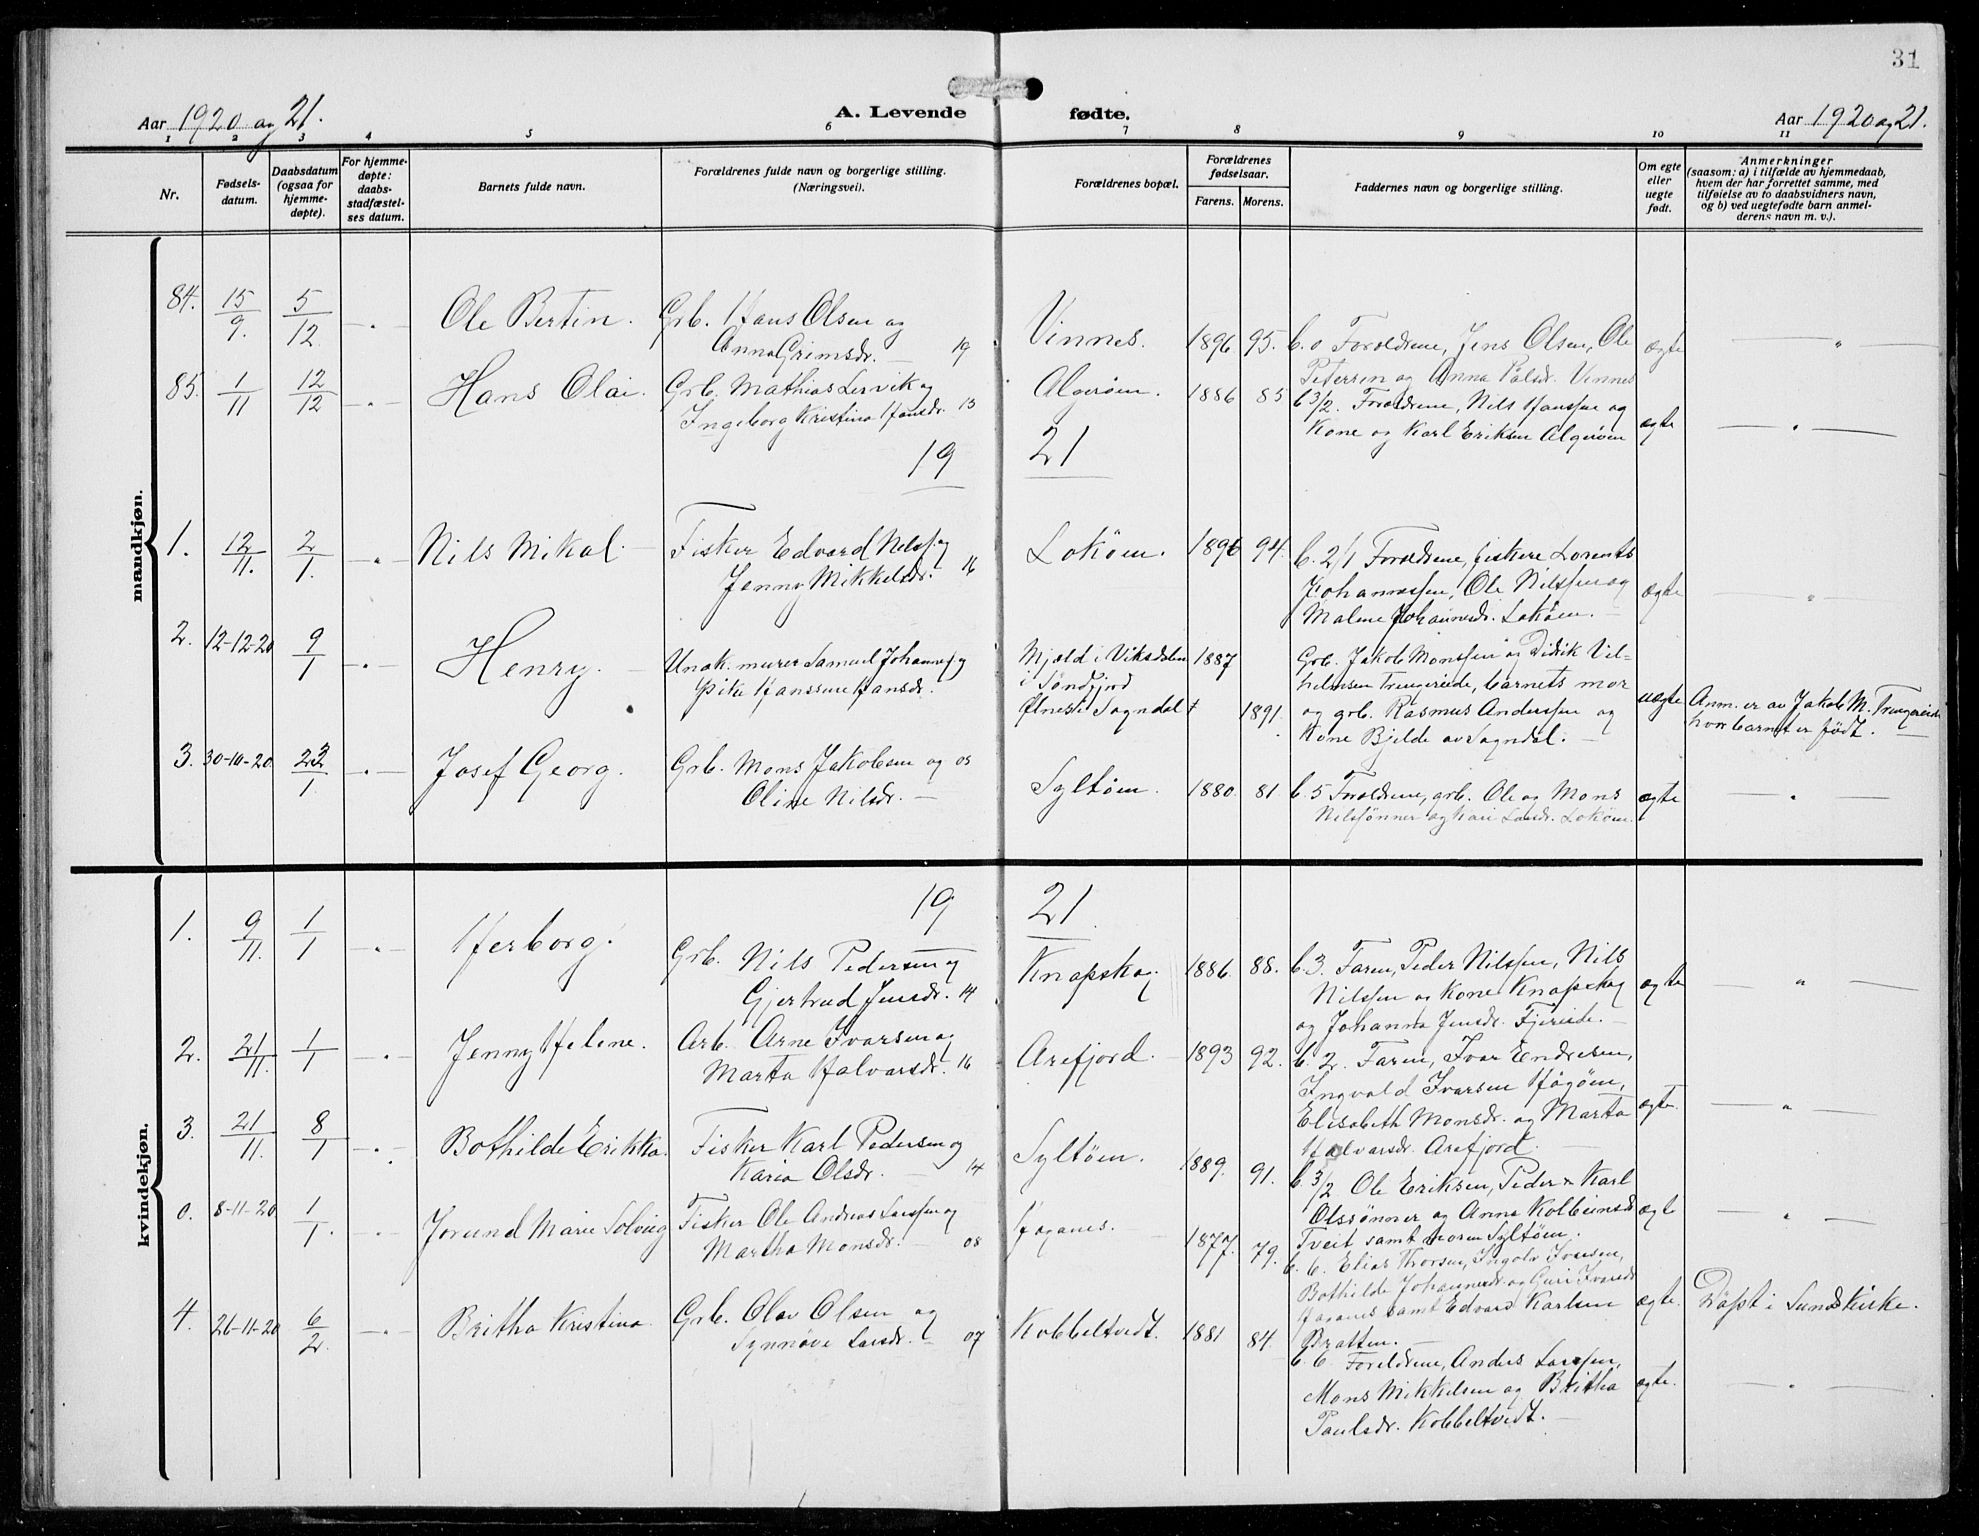 31
Aar 1920 og 21.
A. Levende fødte.
Aar 1920 og 21.
1 2 3 4 5 6 7 8 9 10 11
Nr.
Fødsels-
datum.
Daabsdatum
(ogsaa for
hjemme-
døpte).
For hjemme-
døpte:
daabs-
stadfæstel-
ses datum.
Barnets fulde navn.
Forældrenes fulde navn og borgerlige stilling.
(Næringsvei).
Forældrenes bopæl.
Forældrenes
fødselsaar.
Farens. Morens.
Faddernes navn og borgerlige stilling.
Om egte
eller
uegte
født.
Anmerkninger
(saasom: a) i tilfælde av hjemmedaab,
hvem der har forrettet samme, med
tilføielse av to daabsvidners navn,
og b) ved uegtefødte barn anmel-
derens navn m. v.).
mandkjøn.
84. 15/9. 5/12 Ole Bertin. Grb. Hans Olsen og
Anna Grimsdr. 19 Vinnes. 1896 95. b. 0 Foreldrene, Jens Olsen, Ole
Petersen og Anna Palsdr. Vinnes ægte
85. 1/11 12/12 Hans Olai. Grb. Mathias Lervik og
Ingeborg Kristina Hansdr. 13 Algerøen. 1886 85 b 3/2. Foreldrene, Nils Hanssen og
Kone og Karl Eriksen Algerøen ægte
19 21
1. 12/11. 2/1. Nils Mikal. Fisker Edvard Nilss. og
Jenny Mikkelsdr. 16 Lokøen. 1896 94. b. 2/1 Foreldrene, fiskere Lorents
Johannessen, Ole Nilssen og
Malene Johannesdr. Lokøen. ægte
2. 12-12-20 9/1 Henry. Unok. murer Samuel Johanness. og
pike Hanssine Hansdr. Mjæld i Viksdalen
i Søndfjord
Ølnes i Sogndal 1887 1891. Grb. Jakob Monssen og Didrik Vil-
helmsen Trengereide, barnets mor
og grb. Rasmus Anderssen og
Kone Bjelde av Sogndal. uægte Anm. er av Jakob M. Trengereide
hvor barnet er født.
3. 30-10-20 23/1 Josef Georg. Grb. Mons Jakobsen og 05
Oline Nilsdr. Syltøen. 1880. 81 b. 5 Foreldrene, grb. Ole og Mons
Nilssønner og Kari Larsdr. Lokøen. ægte
kvindekjøn.
19 21
1. 9/11. 1/1 Herborg. Grb. Nils Pedersen og
Gjertrud Jensdr. 14 Knapskog. 1886. 88. b. 3. Faren, Peder Nilssen, Nils
Nilssen og Kone Knapskog
og Johanna Jensdr. Fjereide. ægte
2. 21/11. 1/1 Jenny Helene. Arb. Arne Ivarsen og
Marta Halvarsdr. 16 Arefjord. 1893 92. b. 2. Faren, Ivar Endresen,
Ingvald Ivarsen Hågøen,
Elisabeth Monsdr. og Marta
Halvarsdr. Arefjord. ægte.
3. 21/11. 8/1 Bothilde Erikka. Fisker Karl Pedersen og
Karia Olsdr. 14 Syltøen. 1889. 91. b. 3/2 Ole Eriksen, Peder & Karl
Olssønner og Anna Kolbeinsdr
Tveit samt moren Syltøen. ægte
0. 8-11-20 1/1. Jorund Marie Solveig Fisker Ole Andreas Larssen og
Martha Monsdr. 08 Haganes. 1877. 79. b. 6. Elias Thorsen, Ingolv Ivarsen,
Bothilde Johannesdr. og Guri Ivarsdr
Haganes samt Edvard Karlsen
Bratten. ægte. Døpt i Sundskirke.
4. 26-11-20 6/2. Britha Kristina. Grb. Olav Olsen og
Synnøve Larsdr. 07 Kobbeltvedt. 1881 84. b. 6. Foreldrene, Anders Larssen,
Mons Mikkelsen og Britha
Paulsdr. Kobbeltvedt. ægte.